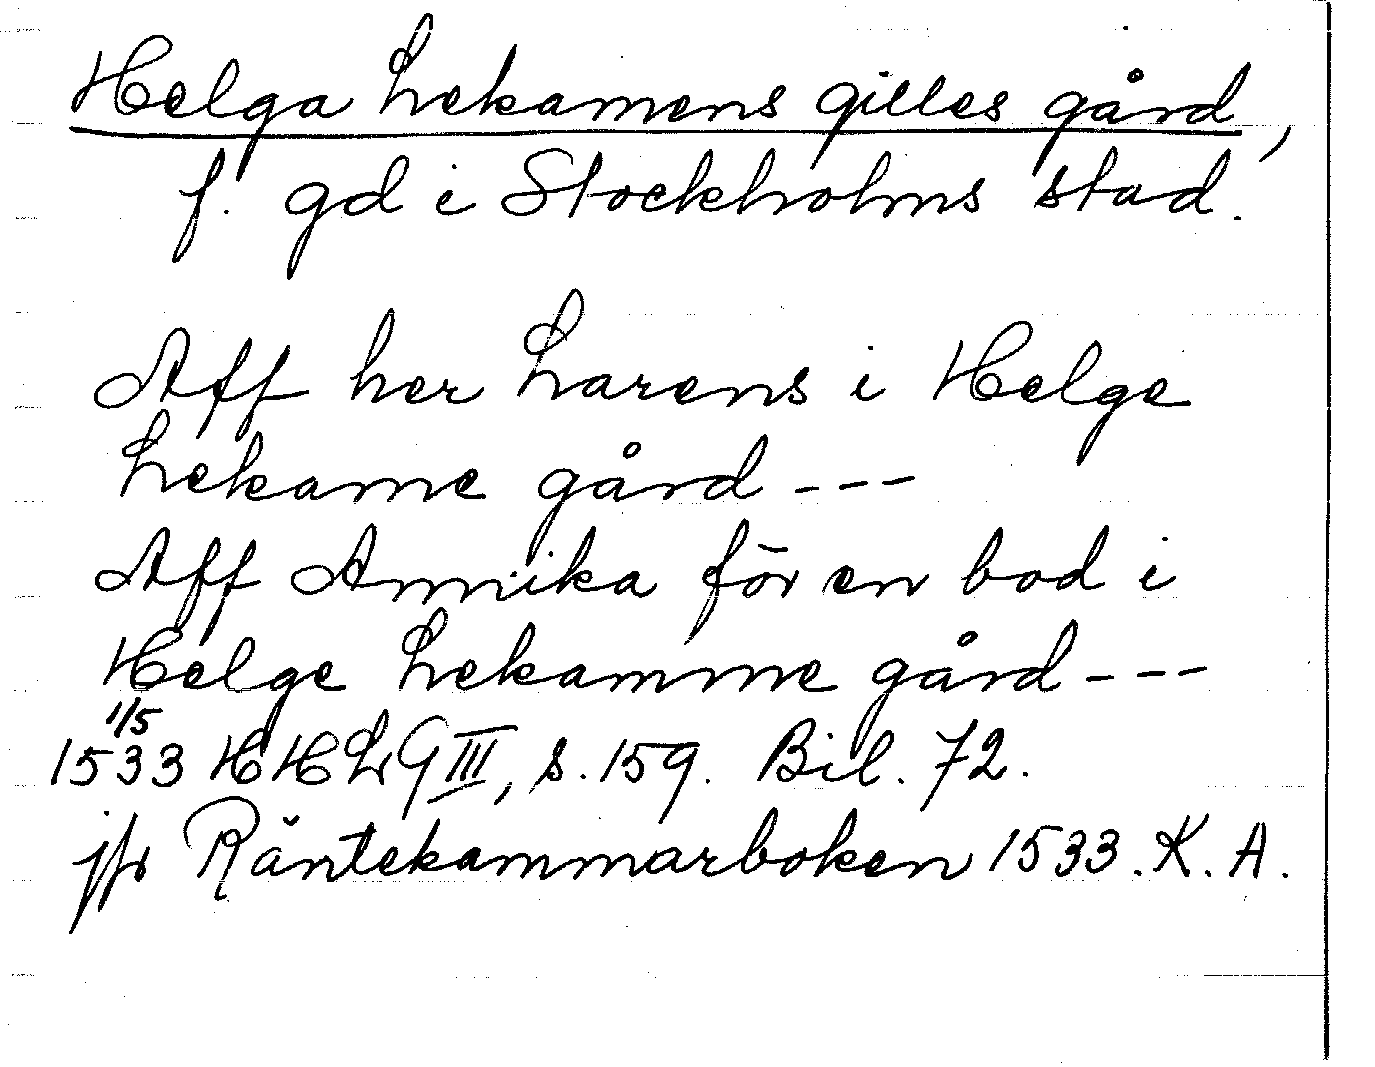 Helga Lekamens gilles gård,
f. gd i Stockholms stad.
Aff her Larens i Helge
Lekame gård ---
Aff Annika för en bod i
Helge Lekamme gård ---
1/5
1533 HHLG III, s. 159. Bil. 72.
jfr Räntekammarboken 1533. K. A.